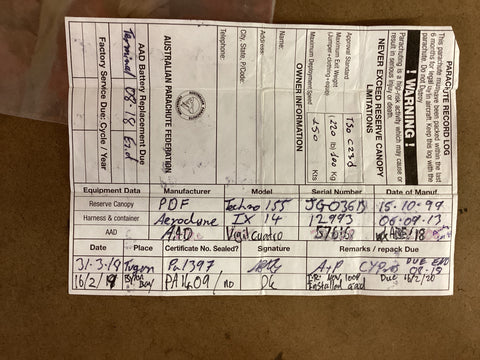 PARACHUTE RECORD LOG
This parachute must have been packed within the last
6 months for legal use in aircraft. Keep this log with the
parachute. Do not
! WARNING !
Parachuting is a high-risk activity which may cause or
result in serious injury or death.
NEVER EXCEED RESERVE CANOPY
LIMITATIONS
Approval Standard TSO C23d
Maximum Exit Weight 220 lb 100 Kg
(Jumper+clothing+equip)
Maximum Deployment Speed 150 Kts
OWNER INFORMATION
Name:
Address:
City, State, P/code:
Telephone:
AUSTRALIAN PARACHUTE FEDERATION
AAD Battery Replacement Due
Terminal 08-18 End
Factory Service Due: Cycle / Year
Equipment Data Manufacturer Model Serial Number Date of Manuf.
Reserve Canopy PDF Techno 155 15-10-99
Harness & container Aerodyne IX 14 12993 06-09-13
AAD AAD Vigil cuatro 57668 /18
Date Place Certificate No. Sealed? Signature Remarks / repack Due
31-3-18 Pa1397 A+P CYPRES DUE END 09-19
16/2/19 PA1409 / no Installed aad Due 16/2/20